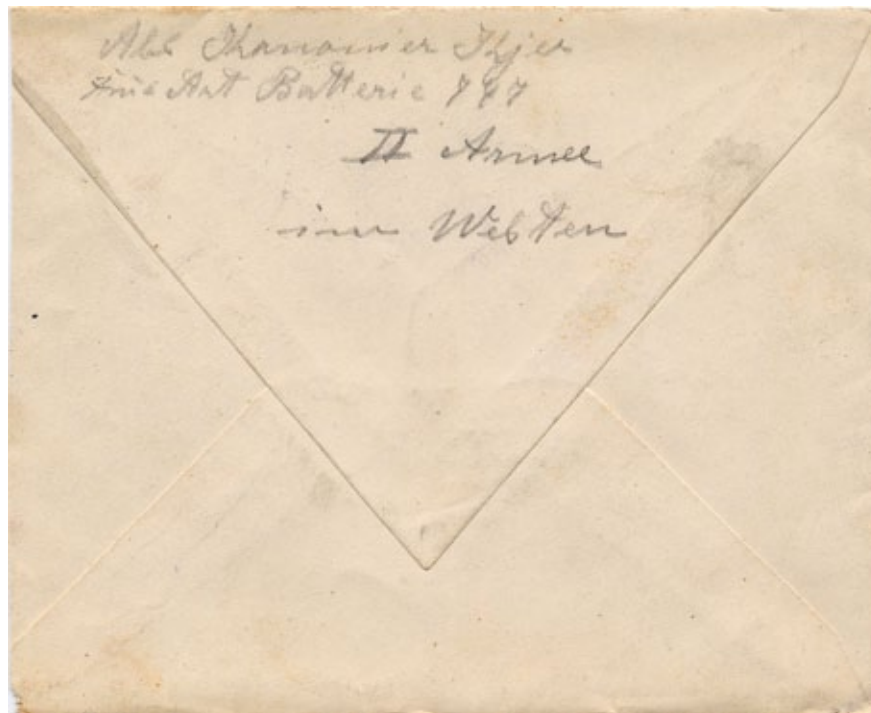 Abs Kanonier Kjer
Art Batterie 777
II Armee
im Westen